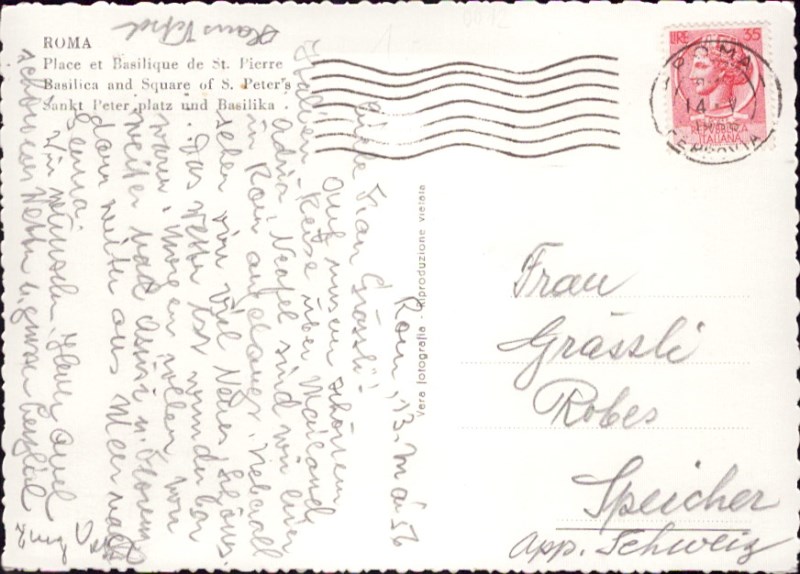 ROMA
Place et Basilique de St. Pierre
Basilica and Square of S. Peter's
Sankt Peter platz und Basilika
Vera fotografia - riproduzione vietata
LIRE 35
REPUBBLICA
ITALIANA
ROMA
14 V
FERROVIA
Rom, 13. Mai 56
Liebe Frau Grässli!
Auf unserer schönen
Italien Reise über Mailand
Adria, Neapel sind wir hier
in Rom Ueberall
sehen wir viel Neues Schönes.
Das Wetter ist wunderbar
warm. Morgen wollen wir
weiter nach Assisi u. Florenz
dann weiter ans Meer nach
Genua.
Wir wünschen Ihnen auch
schönes Wetter u. grüssen herzlich
Frau
Grässli
Robes
Speicher
App. Schweiz